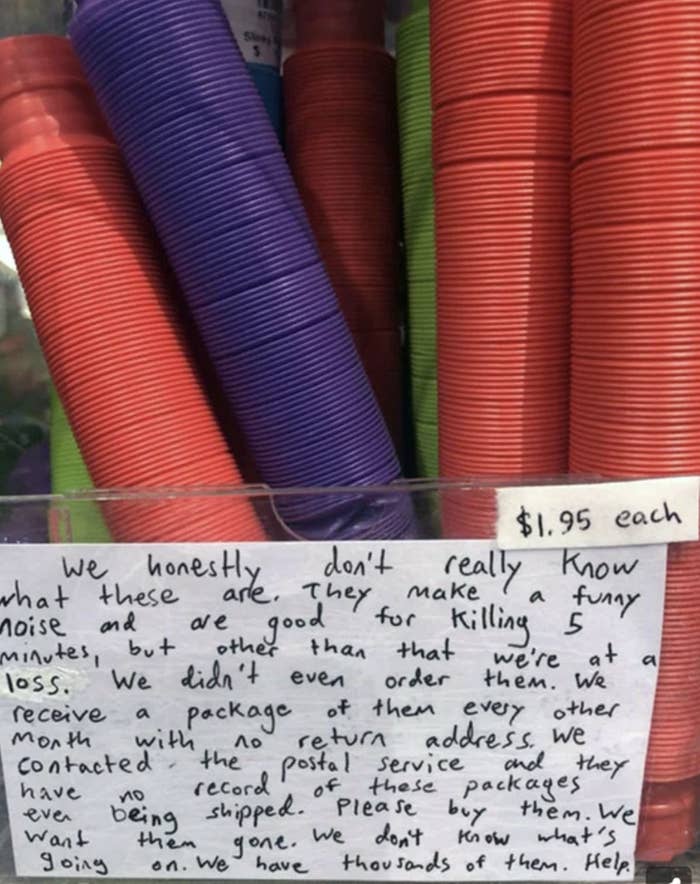 $
$1.95 each
We honestly don't really know
what these are. They make a funny
noise and are good for killing 5
minutes, but other than that we're at a
loss. We didn't even order them. We
receive a package of them every other
month with no return address. We
contacted the postal service and they
have no record of these packages
ever being shipped. Please buy them. We
want them gone. We don't know what's
going on. We have thousands of them. Help.